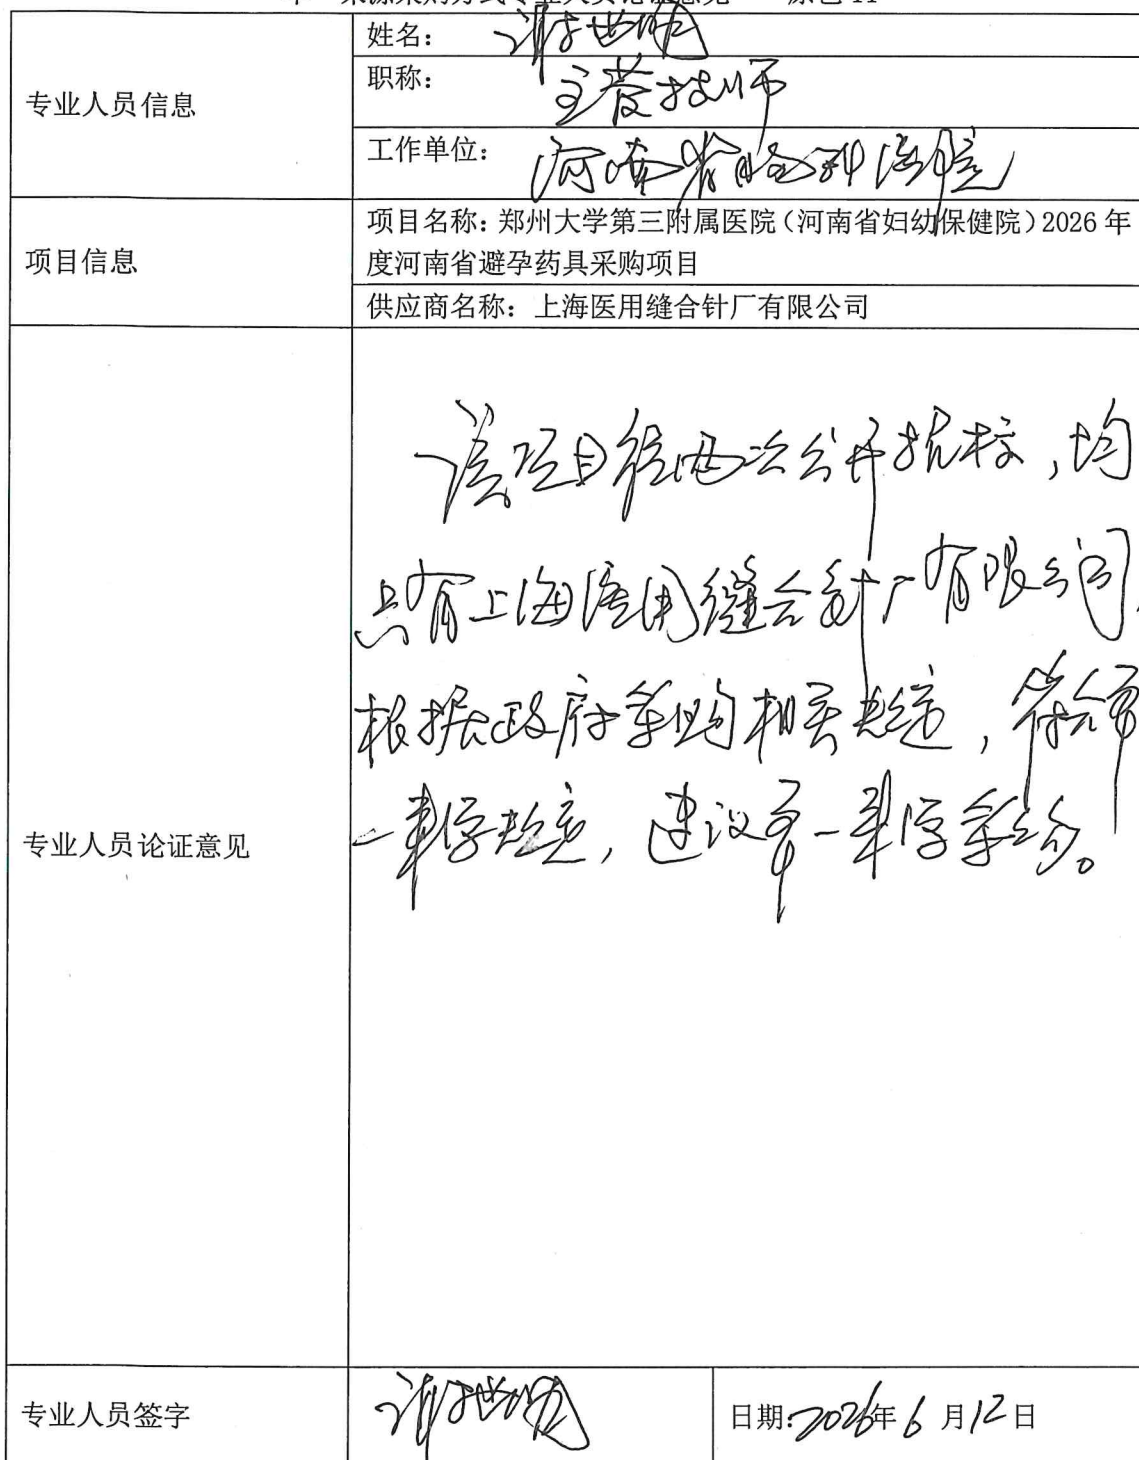 单一来源采购方式专业人员论证意见
专业人员信息
姓名：
职称：主管技师
工作单位：河南省胸科医院
项目信息
项目名称：郑州大学第三附属医院（河南省妇幼保健院）2026年
度河南省避孕药具采购项目
供应商名称：上海医用缝合针厂有限公司
专业人员论证意见
该项目经两次公开招标，均
只有上海医用缝合针厂有限公司，
根据政府采购相关规定，符合单
一来源规定，建议单一来源采购。
专业人员签字
日期：2026年6月12日